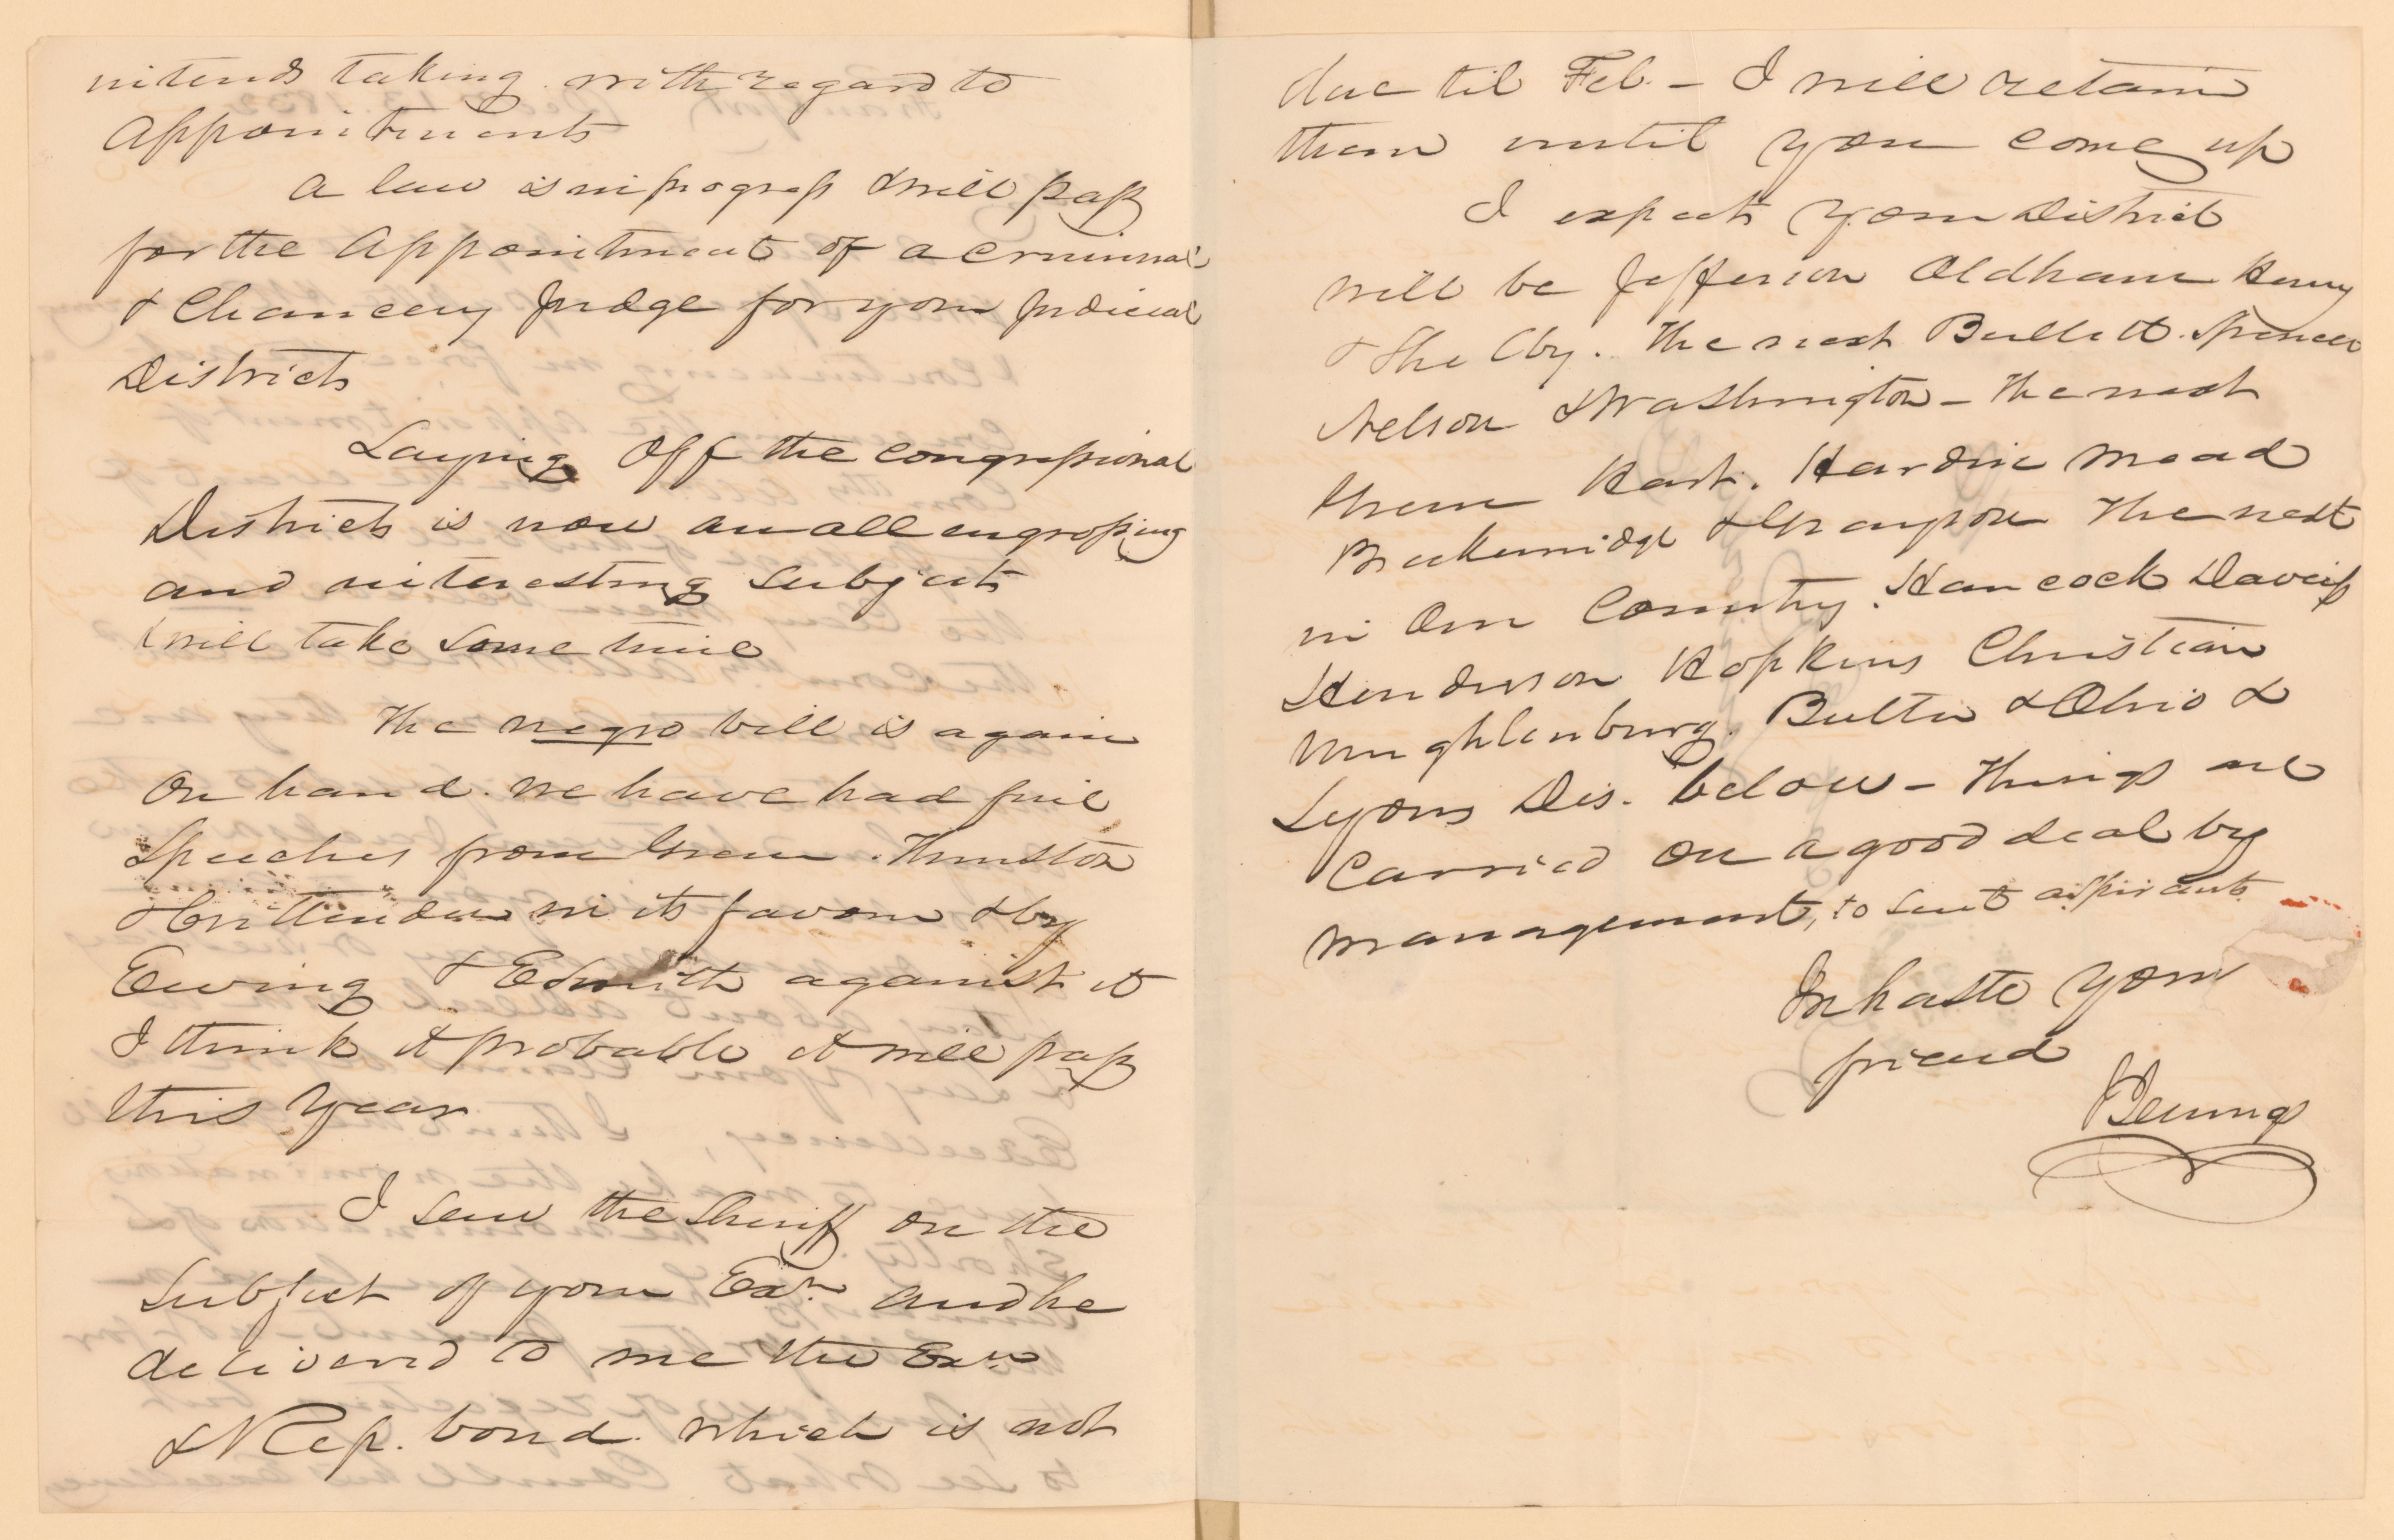 intends taking with regard to
Appointments
A law is in progress & will pass
for the Appointment of a criminal
& Chancery Judge for your Judicial
District
Laying Off the congressional
Districts is now an all engrossing
and interesting subject
& will take some time
The negro bill is again
on hand. we have had fine
Speeches from Green. Thruston
& Crittenden in its favour & by
Ewing & against it
I think it probable it will pass
this year
I saw the Sheriff on the
Subject of your Exn and he
delivered to me the Exn
& Rep. bond. which is not
due til Feb. - I will retain
them until you come up
I expect your District
will be Jefferson Oldham Henry
& the City. The next Bullitt. Spencer
Nelson & Washington - The next
Green Hart. Hardin Mead
Breckenridge & Grayson The next
in Our Country. Hancock Daveiss
Henderson Hopkins Christian
Mughlenburg. Butler & Ohio &
Lyons Dis. below - Things are
Carried on a good deal by
management, to suit aspirants
In haste your
friend